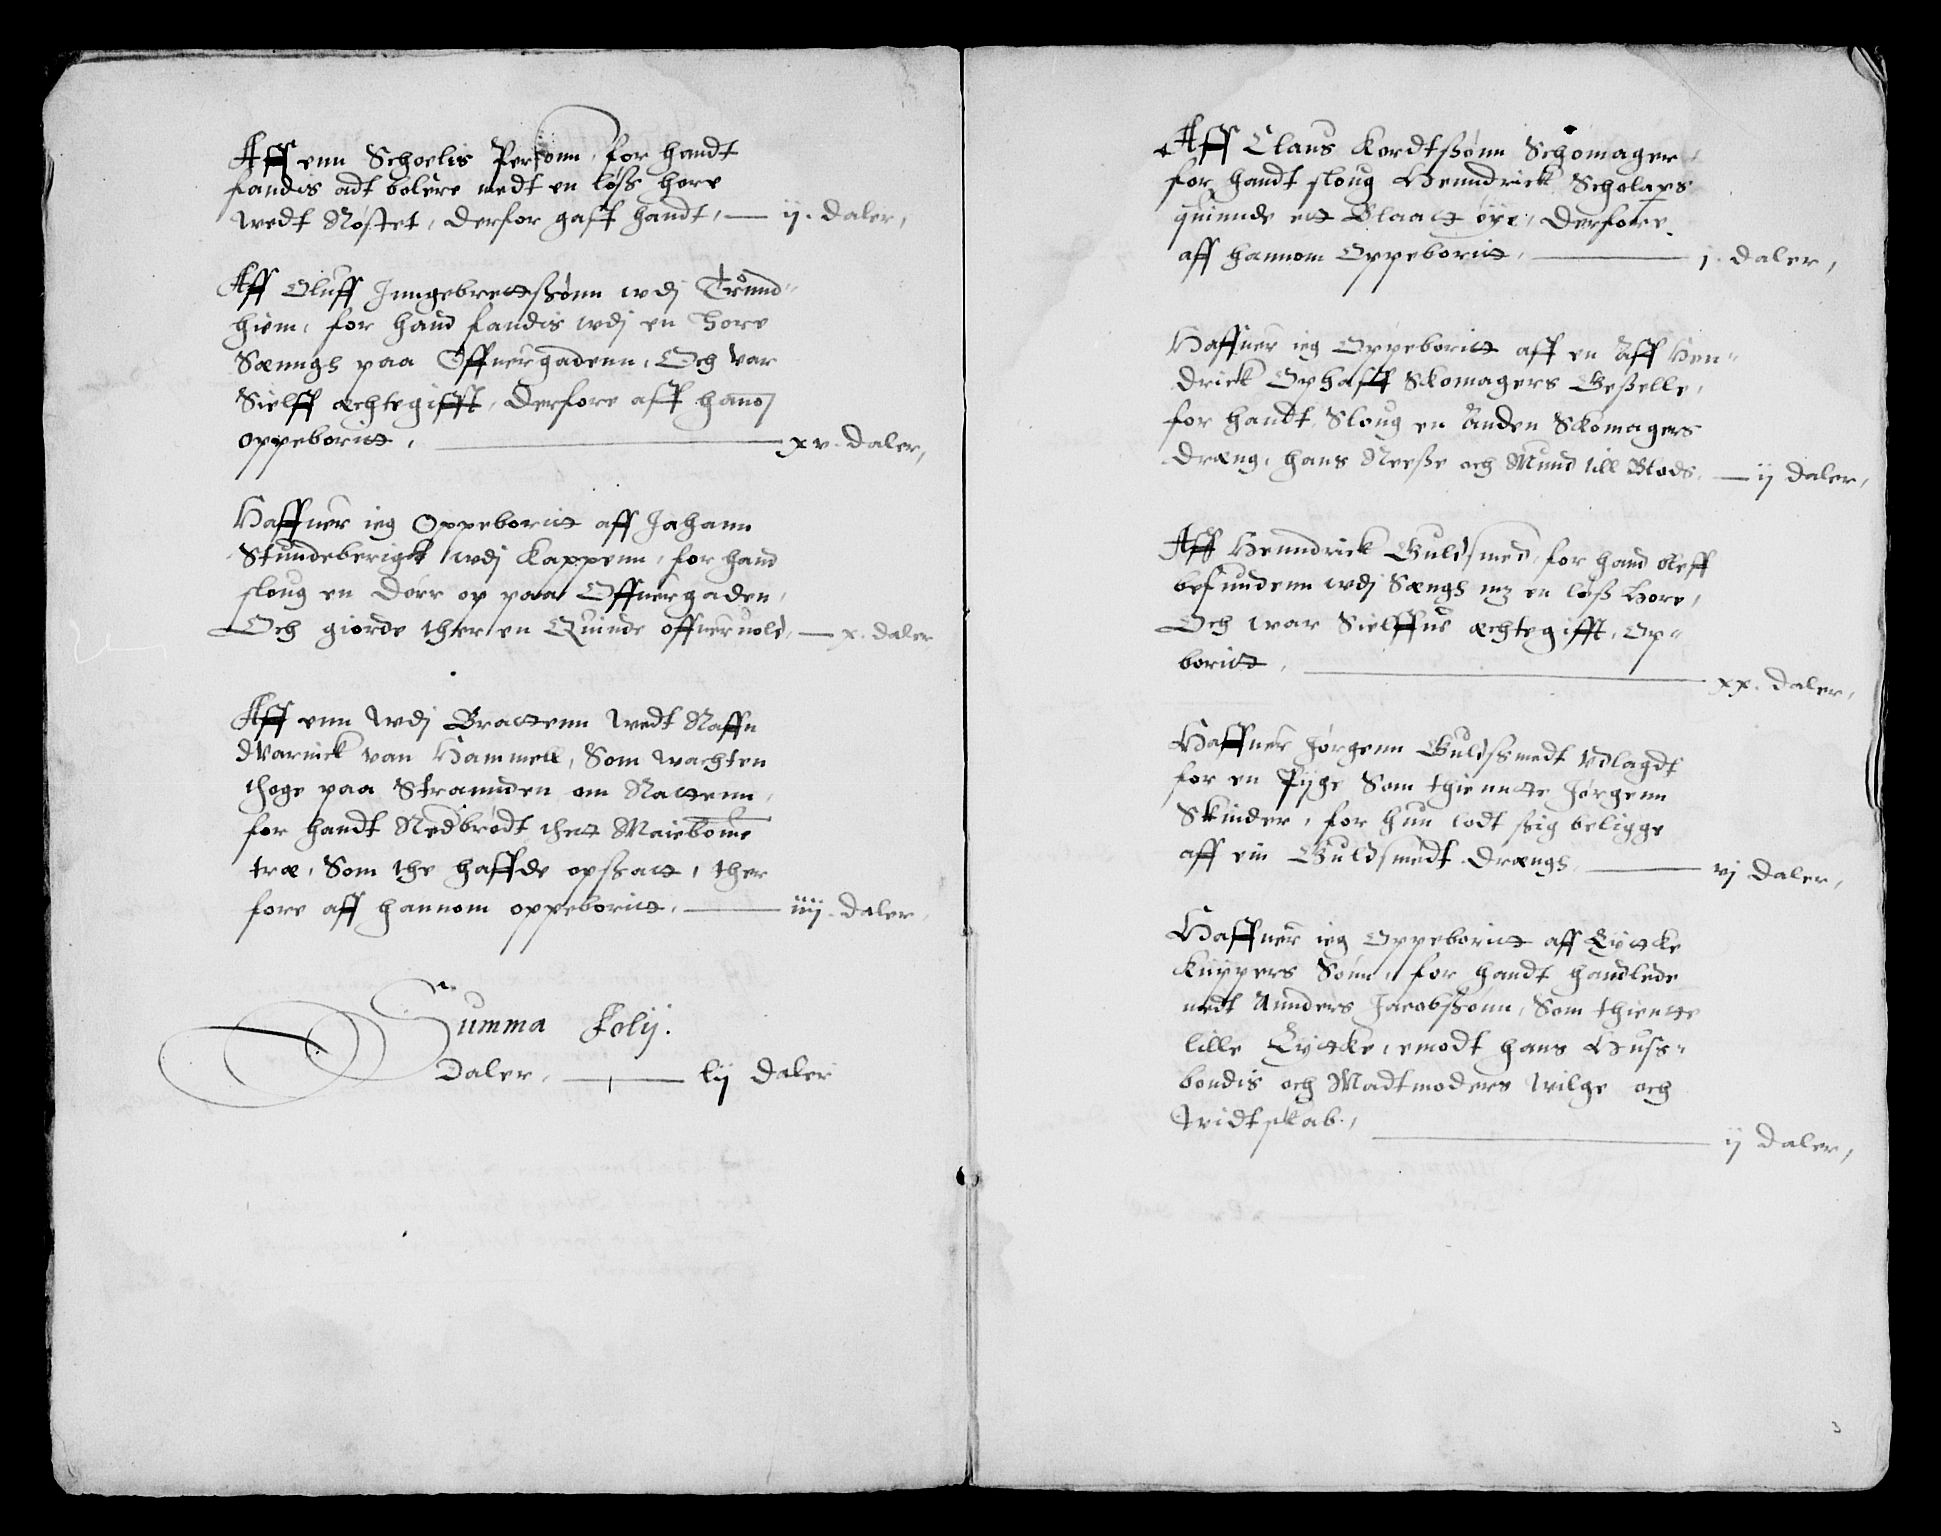 Aff enn Schoelis Personn, for handt
fandis adt bolere medt en løss hore
wedt Nøstet, derfor gaff handt, — ij. daler,
Aff Oluff Jnngebrettssønn wdj Trund-
hiem, for hand fandis wdj en Hore
Sænngh paa Øffuergadenn, Och var
Sielff ægtegifft, Derfore aff hanoj
oppeboritt, — xv. daler,
Haffuer ieg Oppeboritt aff Johann
Stundeberigk wdj Kappenn, for hand
sloug en dørr op paa Øffuergaden,
Och giorde ther en Quinde offueruold, — x. daler
Aff enn wdj Grattenn wedt Naffn
Varnick van Hammell, Som wachten
thoge paa Stranden om Nattenn,
for handt Nedbrødt thett Meiebome
træ, Som the haffde opssatt, ther
fore aff hannom oppeboritt, — iiij. daler,
Summa Folij.
Daler, — lij daler
Aff Claus Kordtssønn Schomager
for handt sloug Henndrick Scholaps
quinnde ett Blaatt øye, Derfore
aff hannom Oppeboritt, — j. daler,
Haffuer ieg Oppeboritt aff en aff Hen-
drick Ophaff Skomagers Geselle,
for handt Sloug en Anden Skomagers
dræng, hans Neesse och Mund till Blods, — ij daler,
Aff Henndrick Guldsmed, for hand bleff
befundenn wdj Sængh mz en løss Hore,
Och war Sielffue ægtegifft, Op-
boritt, — xx. daler,
Haffuer Jørgenn Guldssmedt Vdlagdt
for en Pyge Som thientte Jørgenn
Skinder, for hun lodt ssig beligge
aff ein Guldsmedt drængh, — vj daler,
Haffuer ieg Oppeboritt aff Lytke
Kuppers Sønn, for handt handlede
medt Annders Jacobssønn, Som thientte
lille Lytke, emodt hans Huss-
bondis och Madtmoders wilge och
Widtskab, — ij daler,
3